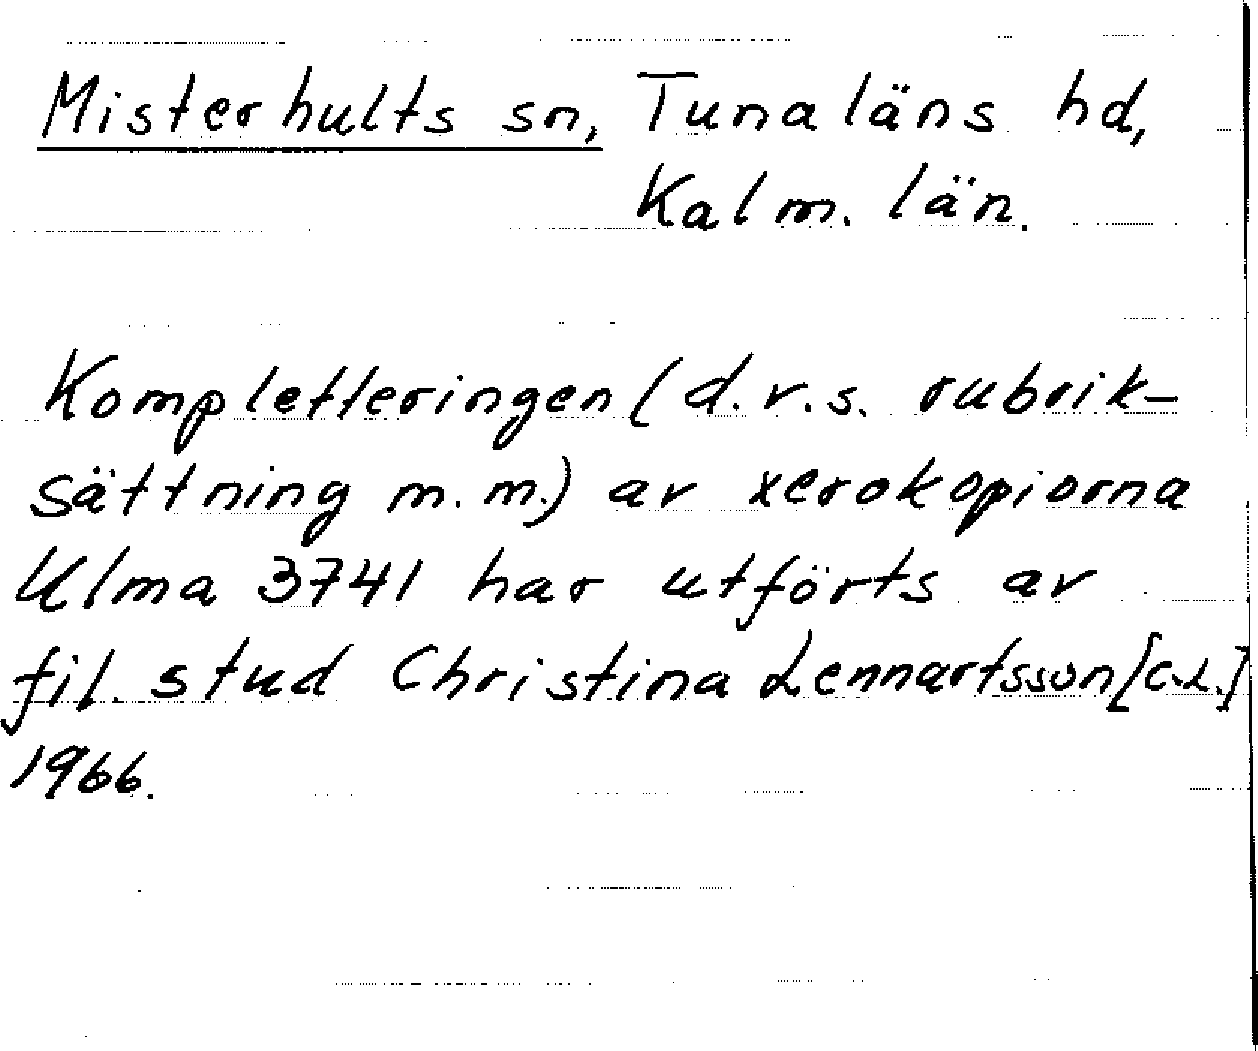 Misterhults sn, Tunaläns hd,
Kalm. län.
Kompletteringen (d.v.s. rubrik-
sättning m.m.) av xerokopiorna
Ulma 3741 har utförts av
fil. stud Christina Lennartsson [C.L.]
1966.